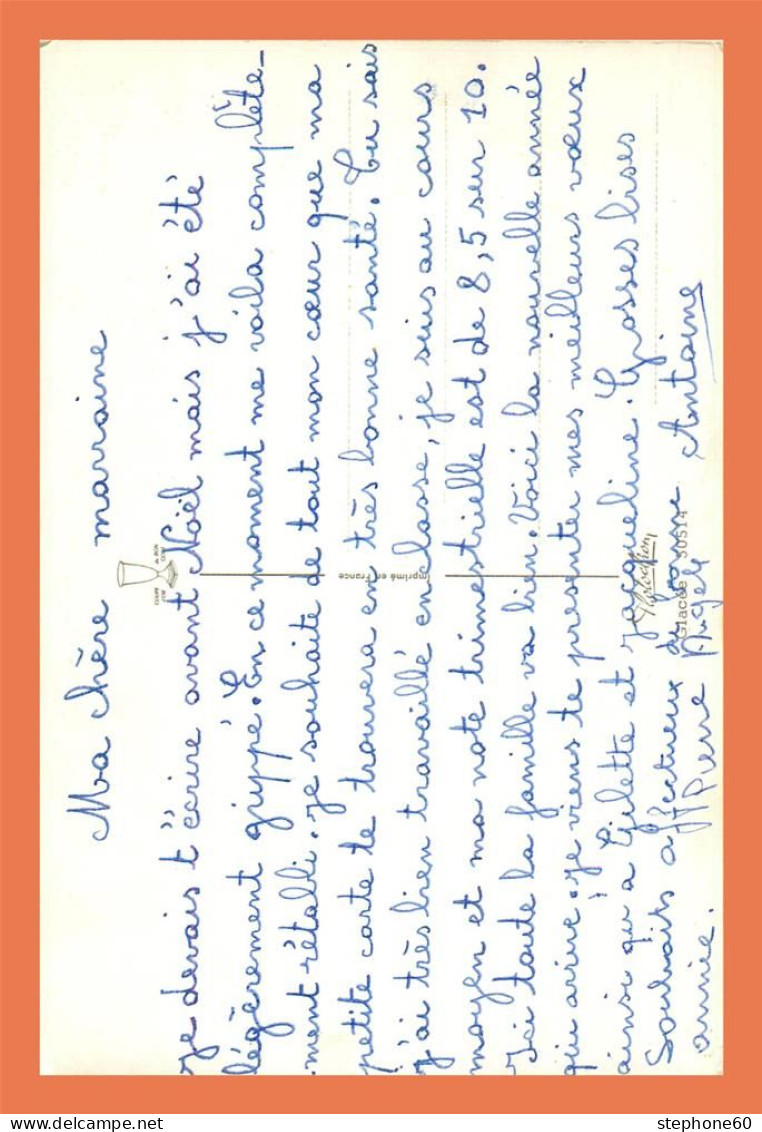 Ma chère marraine
Je devais t'écrire avant Noël mais j'ai été
légèrement grippé. En ce moment me voila complète-
ment rétabli. je souhaite de tout mon cœur que ma
petite carte te trouvera en très bonne santé. Tu sais
j'ai très bien travaillé en classe, je suis au cours
moyen et ma note trimestrielle est de 8,5 sur 10.
Ici toute la famille va bien. Voici la nouvelle année
qui arrive. je viens te présenter mes meilleurs vœux
ainsi qu'à Gilette et Jacqueline. Grosses bises
Souhaits affectueux de bonne Antoine
année. Pierre
Imprimé en France
Glacée 50514
stephone60